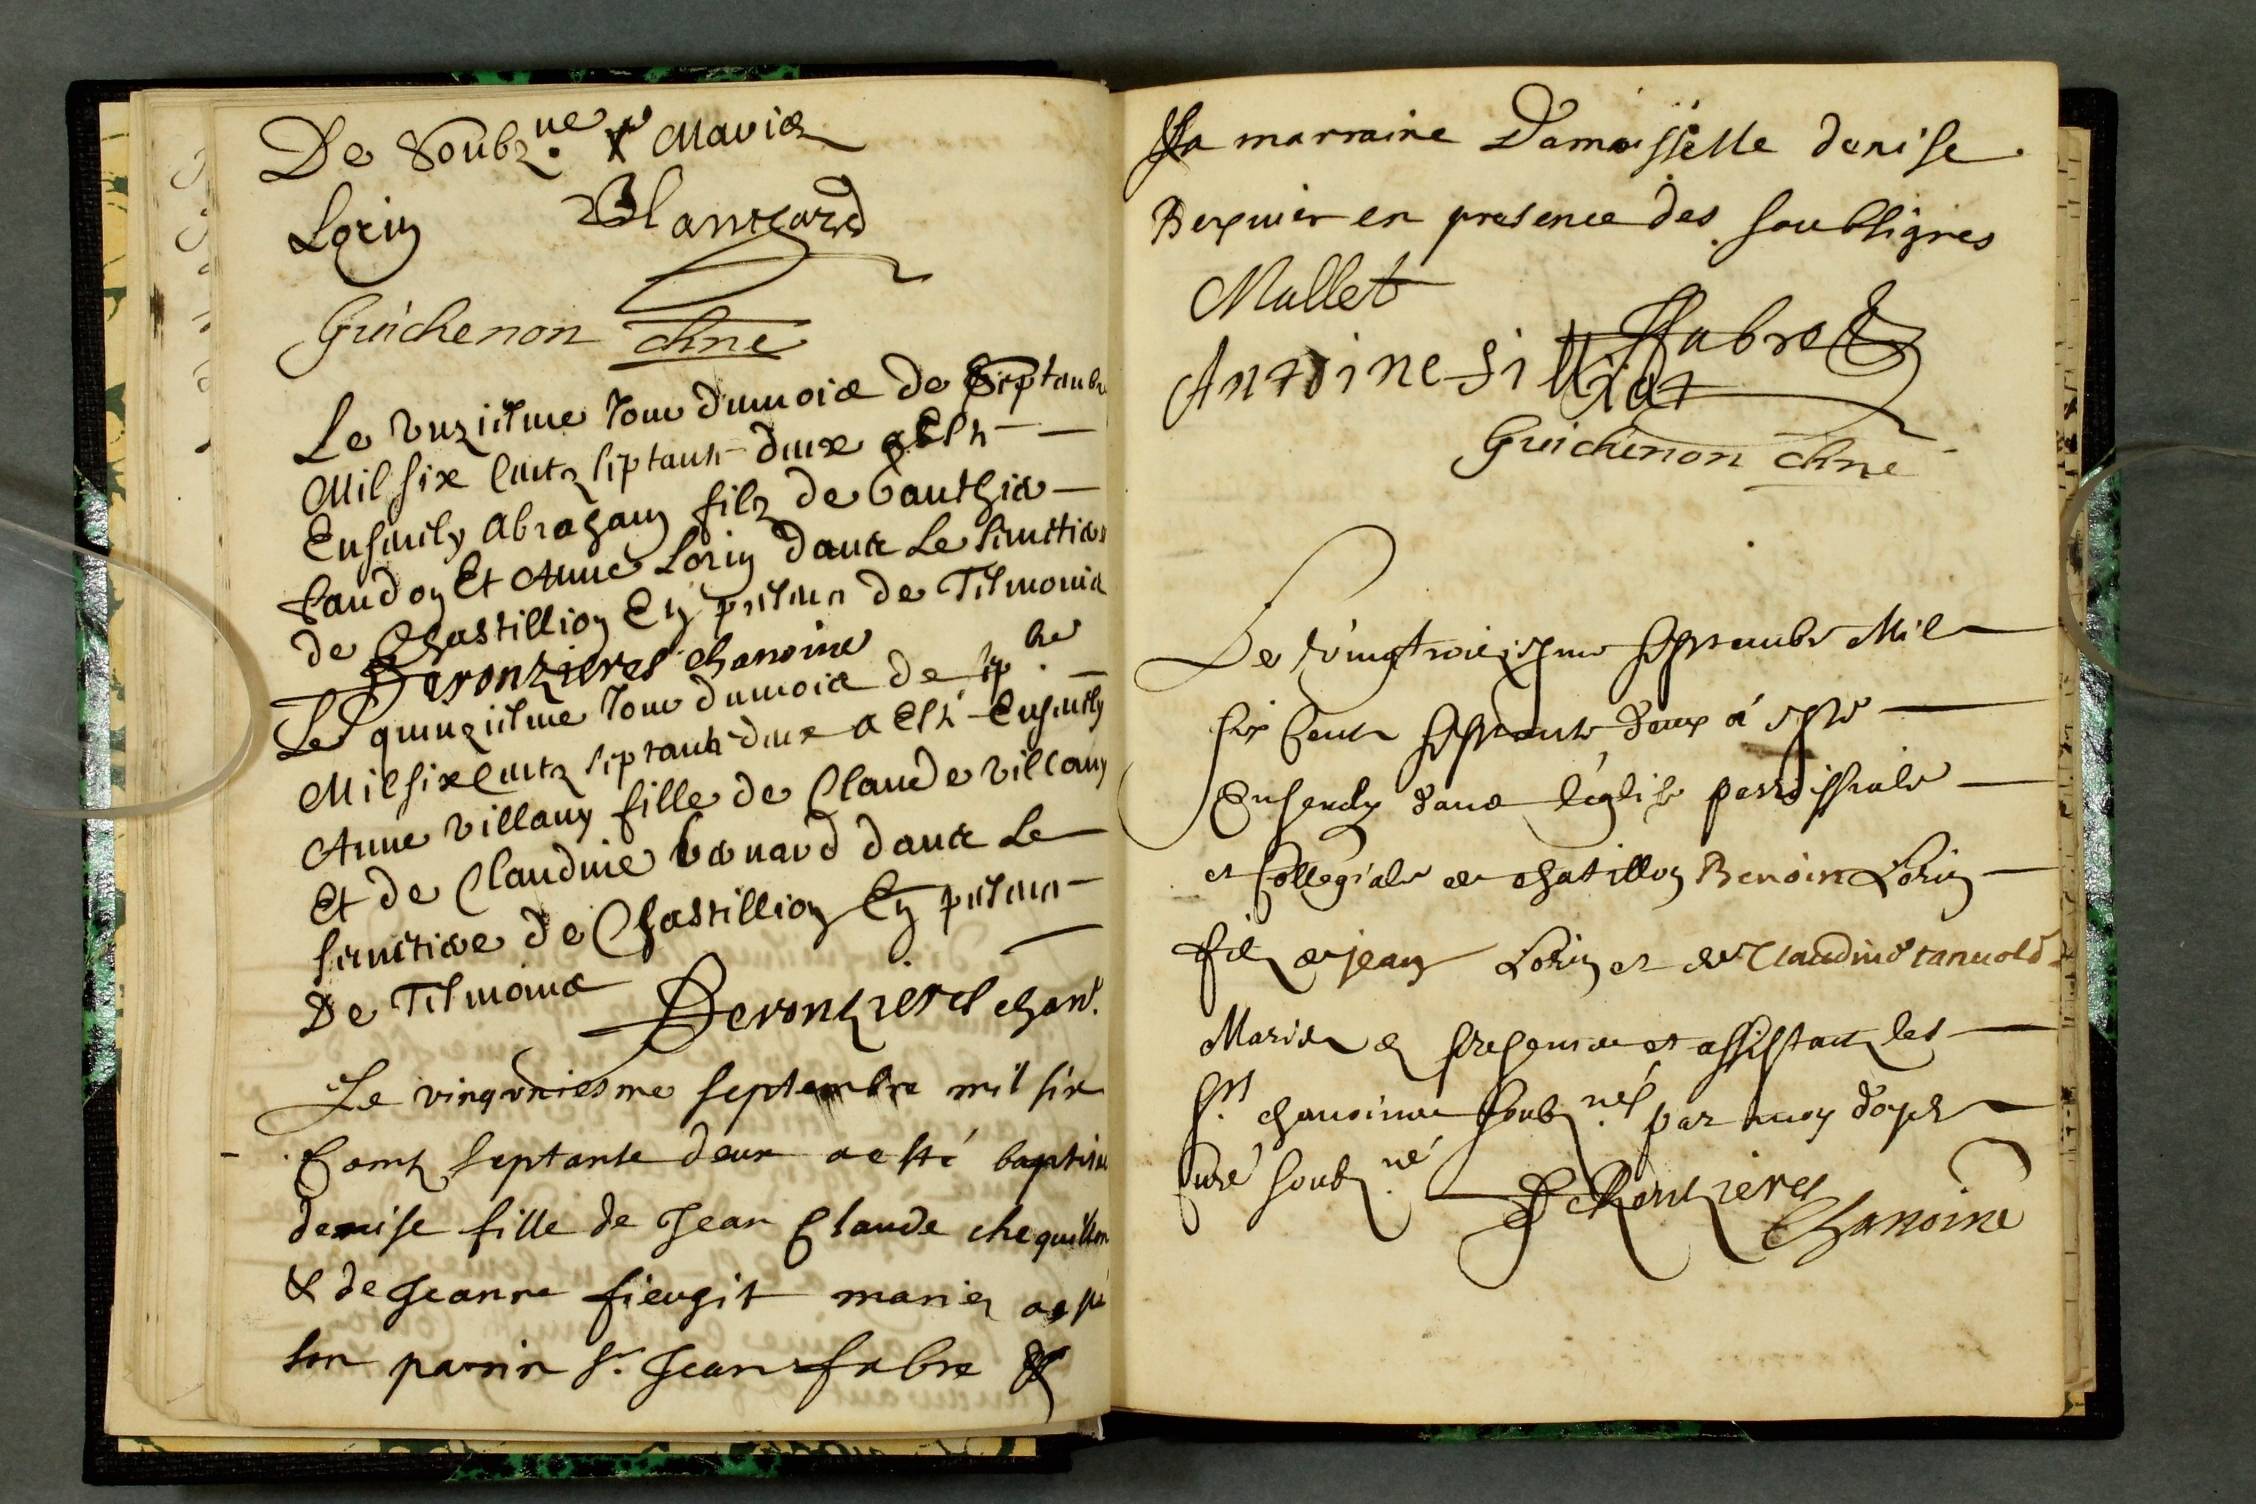 De Soubz.ne Mariez
Lorin Blanchard
Guichenon chne
Le unziesme Jour du mois de Septanbre
Mil six Centz septante deux a esté
Ensevely Abraham filz de
Et Anne Lorin dans Le simetiere
de Chastillion En presence de Tesmoins
Deronzieres chanoine
Le quinziesme Jour du mois de sep.bre
Mil six Centz septante deux a esté Ensevely
Anne villany fille de Claude villany
Et de Claudine dans Le
simetiere de Chastillion En presence
De Tesmoins Deronzieres chan.
Le vingvniesme septembre mil six
Centz septante deux a esté baptisée
denise fille de Jean Claude chequillon
& de Jeanne fieugit mariez a esté
son parrin Sr. Jean fabre &
La marraine Damoisselle denise
Berquier en presence des soubsignes
Mallet
Fabre
Antoine
Guichenon chne
Le vingtroiziesme Septembre Mil
six Cents Septante deux a esté
Ensevely dans l'eglise parroissiale
et Collegiale de chatillon Benoist Lorin
filz de jean Lorin et de Claudine
Mariez en presence et assistant les
Srs chanoines soubz.nés par moy
Curé soubz.né
Deronzieres
Chanoine